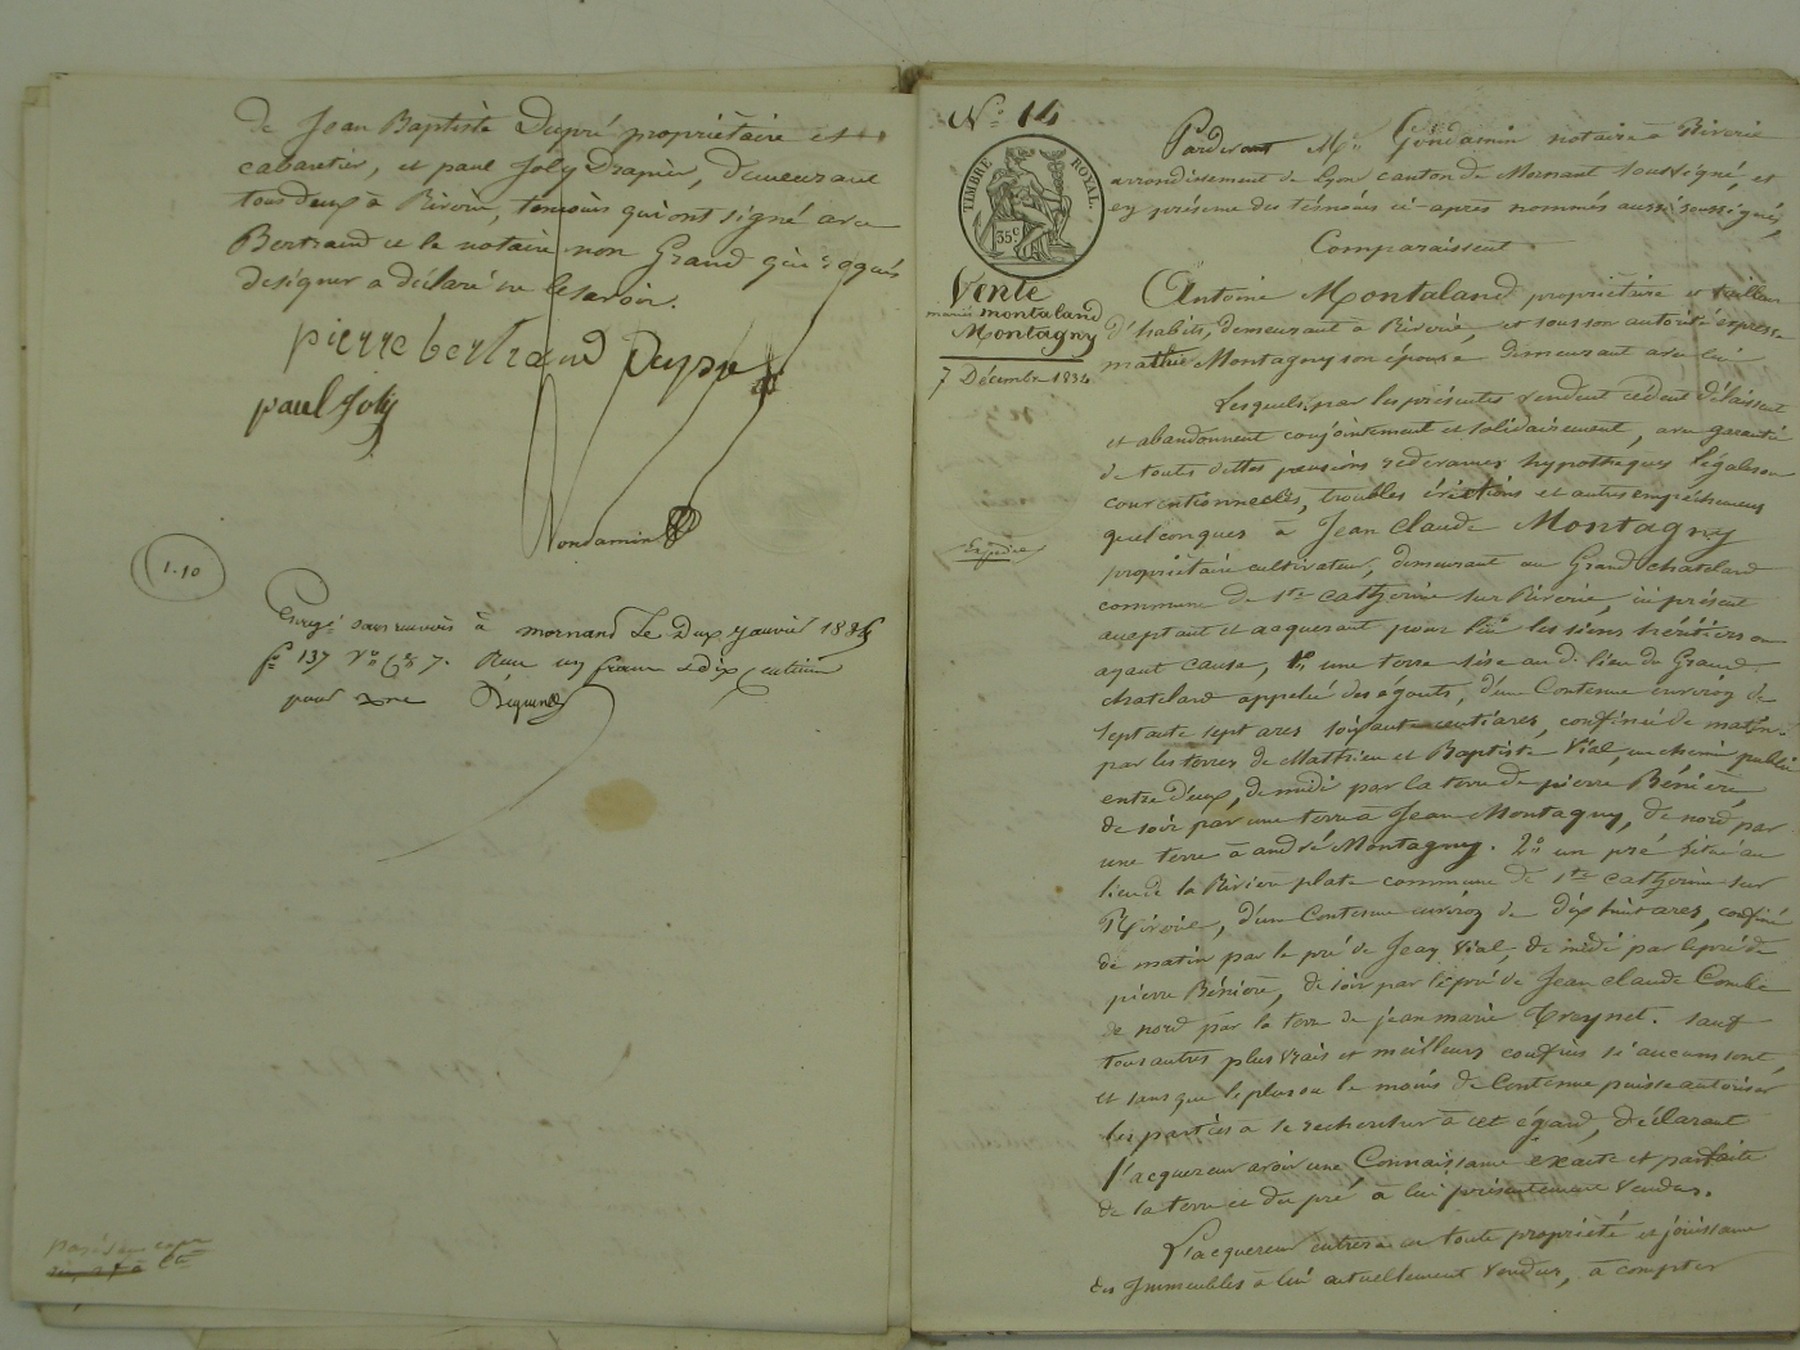 de Jean Baptiste Dupré propriétaire et
cabaretier, et paul Joly Drapier, demeurant
tous deux à Riverie, témoins qui ont signé avec
Bertrand et le notaire non Grand qui requis
de signer a déclaré ne le savoir.
pierre bertrand Dupré
paul Joly
Condamin
1.10
Enregé sans renvois à mornand Le Deux Janvier 183
fo 137 Vo Ce 7. Reçu un franc dix centimes
pour
No 14
TIMBRE ROYAL.
35c
Vente
mariés montaland
Montagny
7 Décembre 1834
Expédiée
Pardevant Me Condamin notaire à Riverie
arrondissement de Lyon canton de Mornant soussigné, et
en présence des témoins ci-après nommés aussi soussignés,
Comparaissent
Antoine Montaland propriétaire et tailleur
d'habits, demeurant à Riverie, et sous son autorité expresse
mathie Montagny son épouse demeurant avec lui
Lesquels par les présentes vendent cèdent délaissent
et abandonnent conjointement et solidairement, avec garantie
de toutes dettes pensions redevances hypothèques légales ou
conventionnelles, troubles évictions et autres empêchemens
quelconques à Jean Claude Montagny
propriétaire cultivateur, demeurant au Grand chatelard
commune de Ste Catherine sur Riverie, ici présent
acceptant et acquerant pour lui les siens héritiers ou
ayant cause, 1o une terre sise au d. lieu du Grand
chatelard appelée des égouts, d'une Contenue environ de
septante sept ares soixante centiares, confinée de matin
par les terres de Mathieu et Baptiste Vial, un chemin public
entre d'eux, de midi par la terre de pierre Bénière,
de soir par une terre à Jean Montagny, de nord par
une terre à andré Montagny. 2o un pré situé au
lieu de la Rivière plate commune de Ste Catherine sur
Riverie, d'une Contenue environ de dix huit ares, confiné
de matin par le pré de Jean Vial, de midi par le pré de
pierre Bénière, de soir par le pré de Jean claude Combe
de nord par la terre de jean marie Creynet. sauf
tous autres plus vrais et meilleurs confins si aucuns sont,
et sans que le plus ou le moins de Contenue puisse autoriser
les parties à se rechercher à cet égard, déclarant
l'acquereur avoir une Connaissance exacte et parfaite
de la terre et du pré à lui présentement vendus.
L'acquereur entrera en toute propriété et jouissance
des Immeubles à lui actuellement vendus, à compter